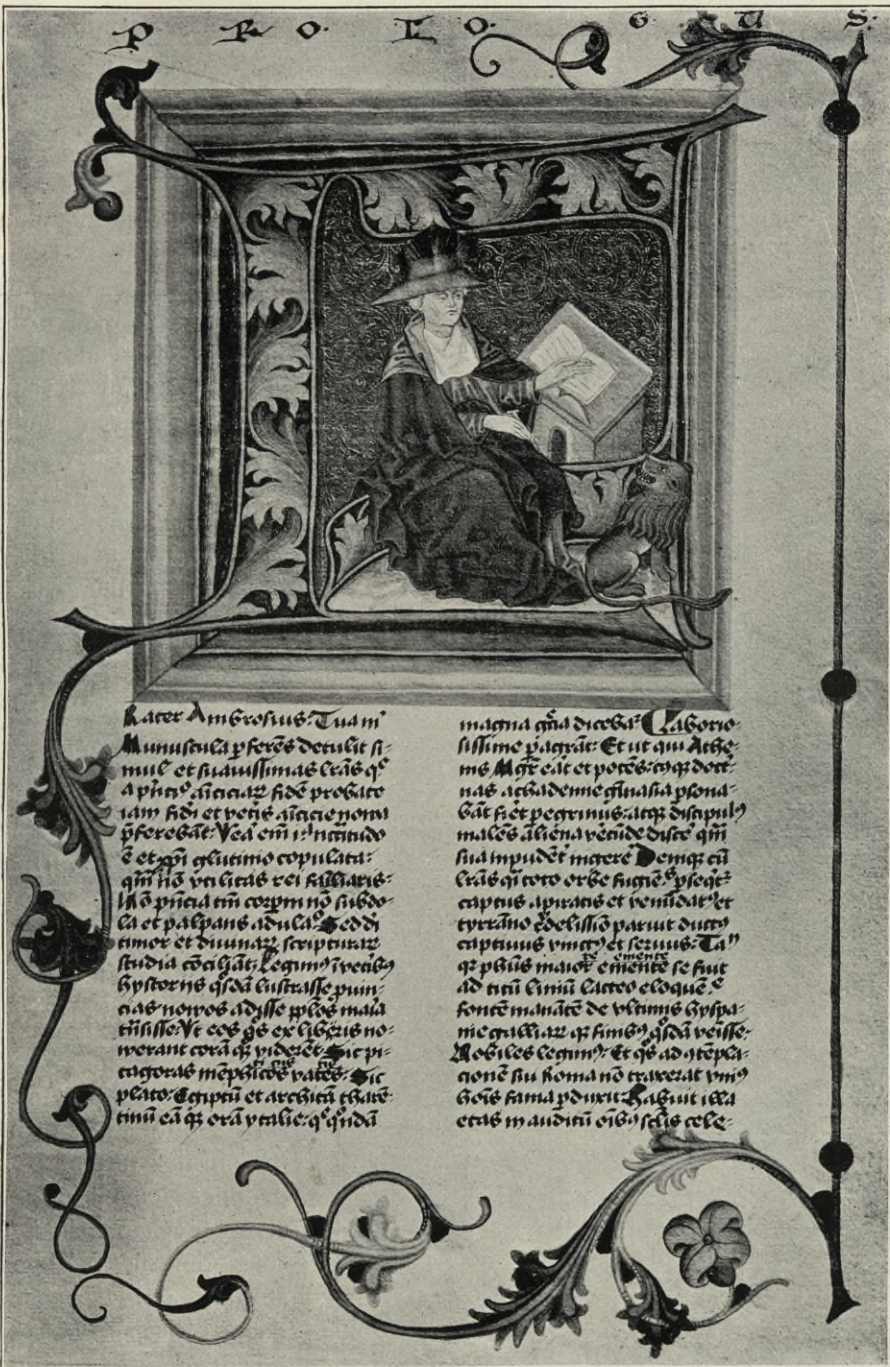 PROLOGUS
Rater Ambrosius: Tua mͥ
Munuscula ꝑferēs detulit si-
mul et suauissimas lrās qͤ
a pͥncͥo amiciciar̄ fidē probate
iam fidi et vetͥs amicicie noua
p̄ferebāt: Vea em̄ necitudo
ē et xp̄i glutino copulata:
qm̄ nō vtilitas rei familiaris:
Nō pn̄cia tm̄ corpm̄ nō subdo-
la et palpans adulaͦ: Sed dī
timor et diuinar̄ scripturar̄
studia cōcilīat: Legimꝰ ī vetibꝫ
hystoriis qͦsdā lustrasse puin-
cias nouos adisse pplōs maia
tn̄sisse: Vt eos qͦs ex libris no-
uerant corā qꝫ viderēt: Sic pi-
tagoras mēphiticos vates: Sic
plato: Egiptū et architā tharē-
tinū eā qꝫ orā ytalie: qͤ qͦndā
magna gͣcia dicebaͬ: Laborio-
sissime ꝑagrāt: Et ut qui Athe-
nis Mgr̄ eāt et potēs: cꝰ qꝫ doct-
nas achademie gīnasia ꝑsona-
bāt fiet pegrinus: atqꝫ discipulꝰ
malēs aliena vecūde discē qm̄
sua inpudēt ingerē Demiqꝫ cū
lrās qͥ toto orbe fugiēͤs ꝑseqͬt
captus a piratis et venūdatꝰ et
tyrāno cͥdelissīo paruit ductꝰ
captiuus vinctꝰ et seruus: Taͫ
qꝫ phūs maior emēnte se fuit
ad titū liuiū lacteo eloquēͤ
fontē manātē de vltimis hyspa-
nie galliar̄ qꝫ finibꝫ qͦsdā veīsse-
Nobiles legimꝰ: Et qͦs ad ꝯtēpla-
cionē sui Roma nō traxerat vniꝰ
hoīs fama ꝑduxit: Habuit illa
etas in auditū oībꝫ sclīs cele-